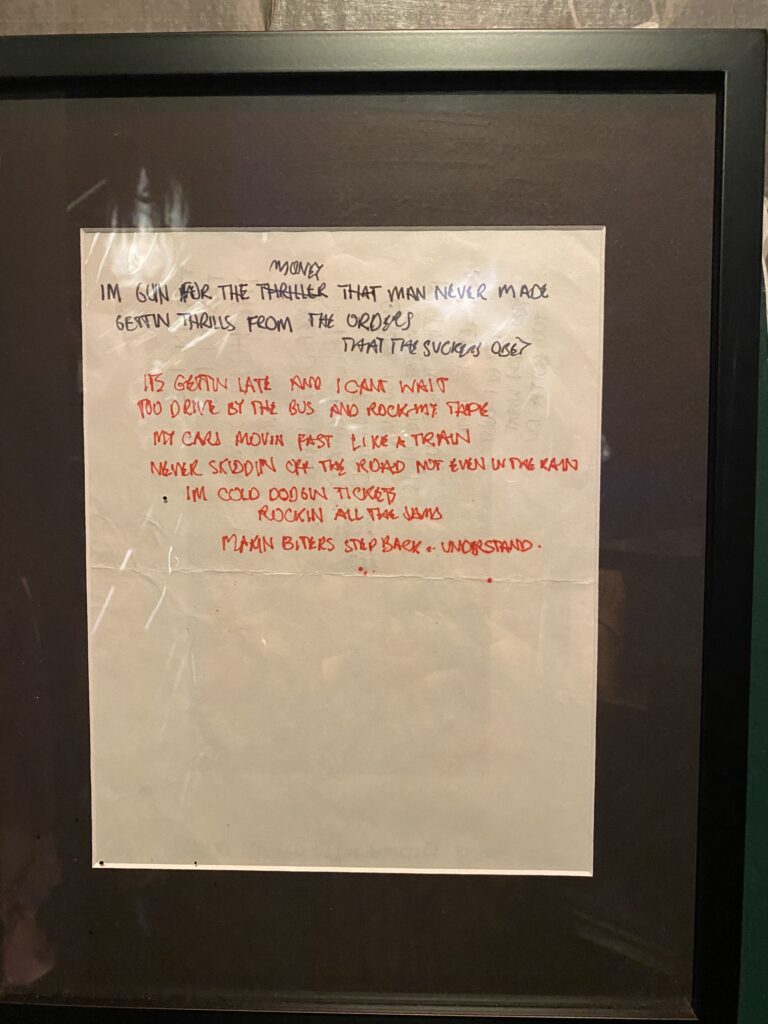 MONEY
IM GUN FOR THE THRILLER THAT MAN NEVER MADE
GETTIN THRILLS FROM THE ORDERS
THAT THE SUCKERS OBEY
ITS GETTIN LATE AND I CANT WAIT
TOO DRIVE BY THE BUS AND ROCK MY TAPE
MY CARS MOVIN FAST LIKE A TRAIN
NEVER SKIDDIN OFF THE ROAD NOT EVEN IN THE RAIN
IM COLD DODGIN TICKETS
ROCKIN ALL THE JAMS
MAKIN BITERS STEP BACK.. UNDERSTAND.